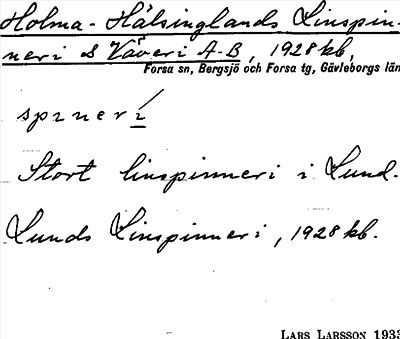 Holma-Hälsinglands Linspin-
neri & Väveri A-B, 1928 kb,
Forsa sn, Bergsjö och Forsa tg, Gävleborgs län
spineri
Stort linspinneri i Lund.
Lunds Linspinneri, 1928 kb.
LARS LARSSON 1933